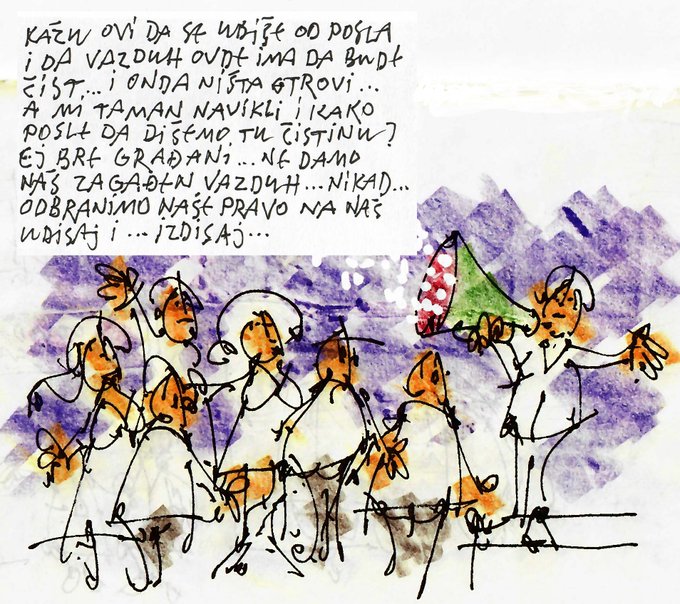 KAŽU OVI DA SE UBIŠE OD POSLA
I DA VAZDUH OVDE IMA DA BUDE
ČIST... I ONDA NIŠTA OTROVI...
A MI TAMAN NAVIKLI I KAKO
POSLE DA DIŠEMO TU ČISTINU?
EJ BRE GRAĐANI... NE DAMO
NAŠ ZAGAĐEN VAZDUH... NIKAD...
ODBRANIMO NAŠE PRAVO NA NAŠ
UDISAJ I ... IZDISAJ...